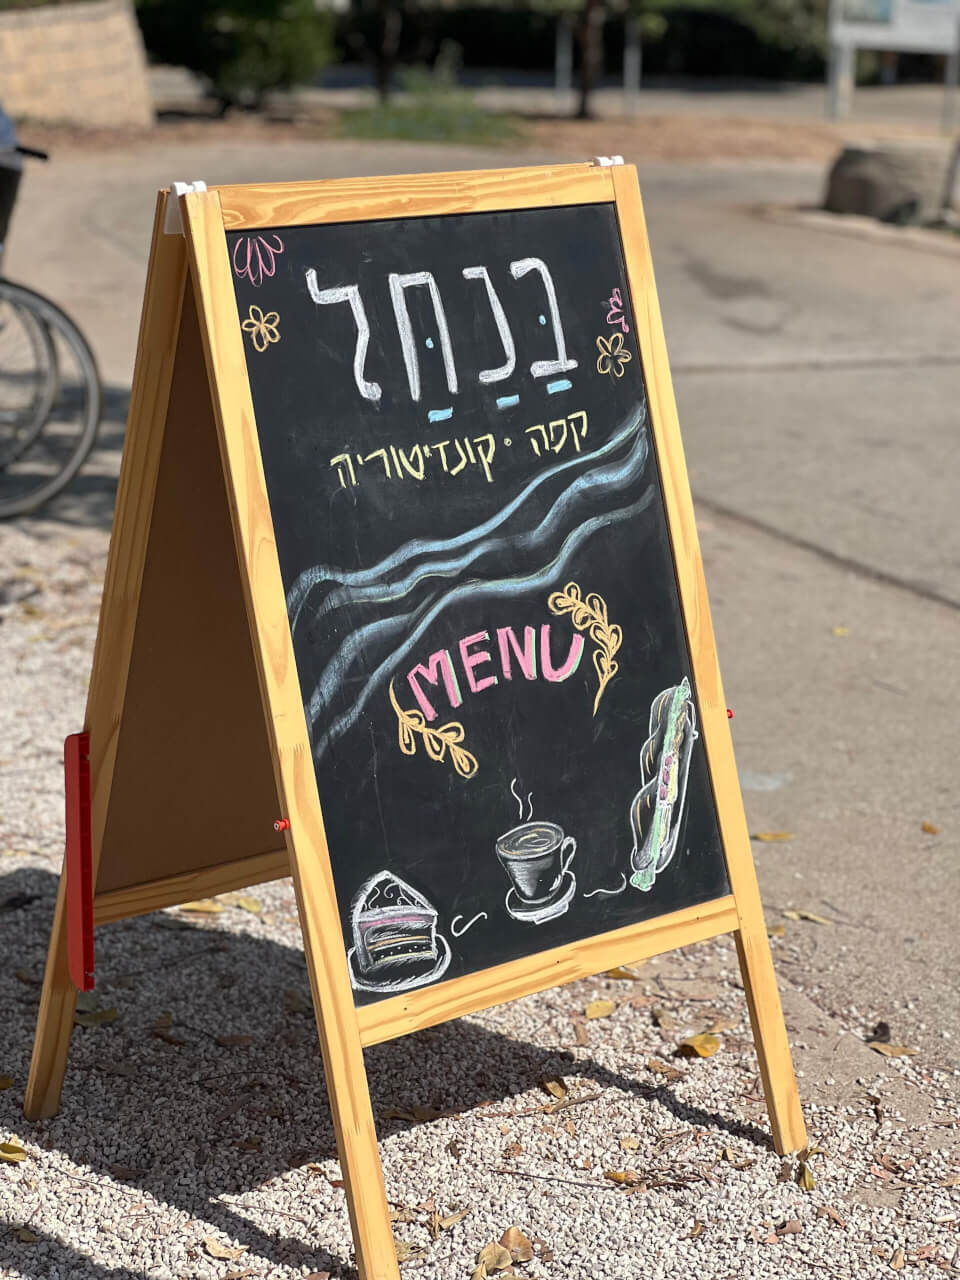 בַּנַחַל
קפה • קונדיטוריה
MENU